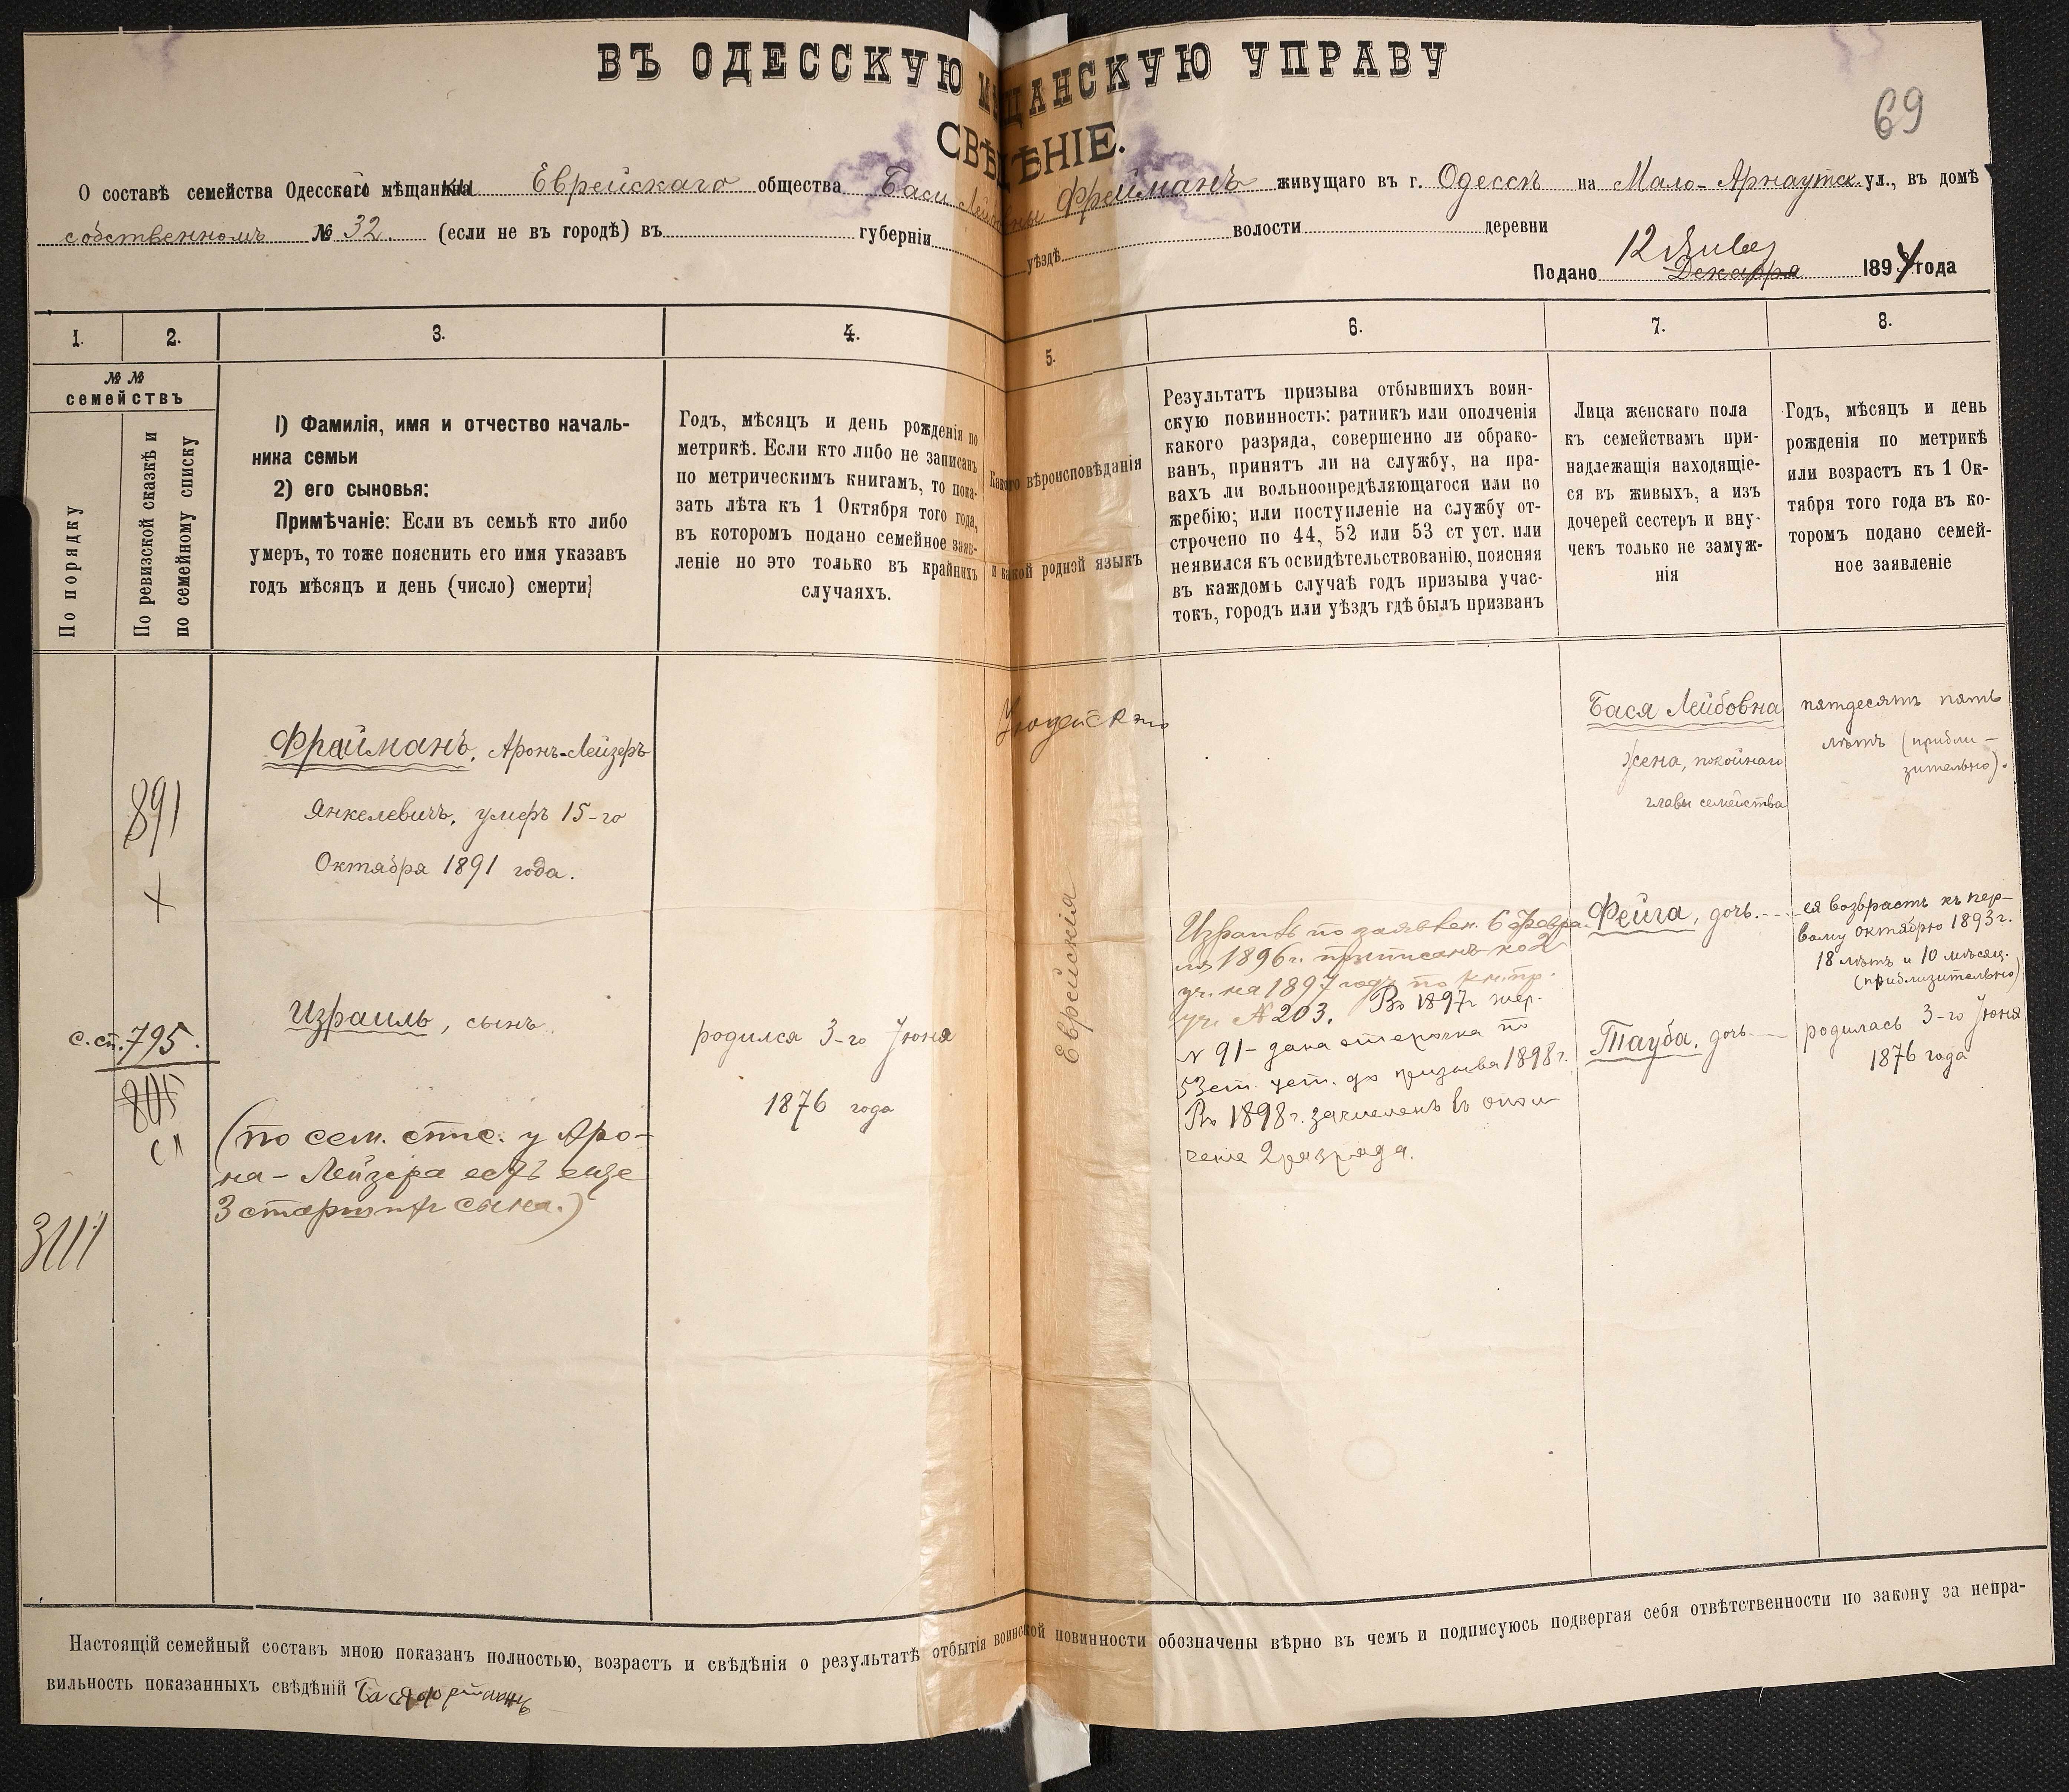 ВЪ ОДЕССКУЮ МѢЩАНСКУЮ УПРАВУ
69
СВѢДѢНІЕ.
О составѣ семейства Одесской мѣщанки Еврейскаго общества Баси Лейбовны Фрейманъ живущаго въ г. Одессѣ на Мало-Арнаутск. ул., въ домѣ
собственномъ № 32. (если не въ городѣ) въ губерніи уѣздѣ волости деревни
Подано 12 Янвр Декабря 1894 года
1. 2. 3. 4. 5. 6. 7. 8.
№ №
семействъ
По порядку
По ревизской сказкѣ и
по семейному списку
1) Фамилія, имя и отчество началь-
ника семьи
2) его сыновья:
Примѣчаніе: Если въ семьѣ кто либо
умеръ, то тоже пояснить его имя указавъ
годъ мѣсяцъ и день (число) смерти)
Годъ, мѣсяцъ и день рожденія по
метрикѣ. Если кто либо не записанъ
по метрическимъ книгамъ, то пока-
зать лѣта къ 1 Октября того года,
въ которомъ подано семейное заяв-
леніе но это только въ крайнихъ
случаяхъ.
Какого вѣроисповѣданія
и какой родной языкъ
Результатъ призыва отбывшихъ воин-
скую повинность: ратникъ или ополченія
какого разряда, совершенно ли обрако-
ванъ, принятъ ли на службу, на пра-
вахъ ли вольноопредѣляющагося или по
жребію; или поступленіе на службу от-
строчено по 44, 52 или 53 ст уст. или
неявился къ освидѣтельствованію, поясняя
въ каждомъ случаѣ годъ призыва учас-
токъ, городъ или уѣздъ гдѣ былъ призванъ
Лица женскаго пола
къ семействамъ при-
надлежащія находящіе-
ся въ живыхъ, а изъ
дочерей сестеръ и вну-
чекъ только не замуж-
нія
Годъ, мѣсяцъ и день
рожденія по метрикѣ
или возрастъ къ 1 Ок-
тября того года въ ко-
торомъ подано семей-
ное заявленіе
891
+
с. сп. 795.
805
сп
3111
Фрайманъ, Аронъ-Лейзеръ
Янкелевичъ, умеръ 15-го
Октября 1891 года.
Израиль, сынъ.
(по сем. спис. у Аро-
на-Лейзера есть еще
3 старшихъ сына.)
родился 3-го Іюня
1876 года
Іюдейскаго
Еврейскія
Израиль по заявлен. 6 Февра-
ля 1896 г. приписанъ ко 2
уч. на 1897 годъ по кн. пр.
уч. № 203. Въ 1897 г. жер.
№ 91 - дана отсрочка по
53 ст. уст. до призыва 1898 г.
Въ 1898 г. зачисленъ въ опол
ченіе 2 разряда.
Бася Лейбовна
жена, покойнаго
главы семейства
Фейга, дочь
Тауба, дочь
пятдесятъ пять
лѣтъ (прибли-
зительно).
ея возврастъ къ пер-
вому октябрю 1893 г.
18 лѣтъ и 10 мѣсяц.
(приблизительно)
родилась 3-го Іюня
1876 года
Настоящій семейный составъ мною показанъ полностью, возрастъ и свѣдѣнія о результатѣ отбытія воинской повинности обозначены вѣрно въ чемъ и подписуюсь подвергая себя отвѣтственности по закону за непра-
вильность показанныхъ свѣдѣній Бася Фрайманъ